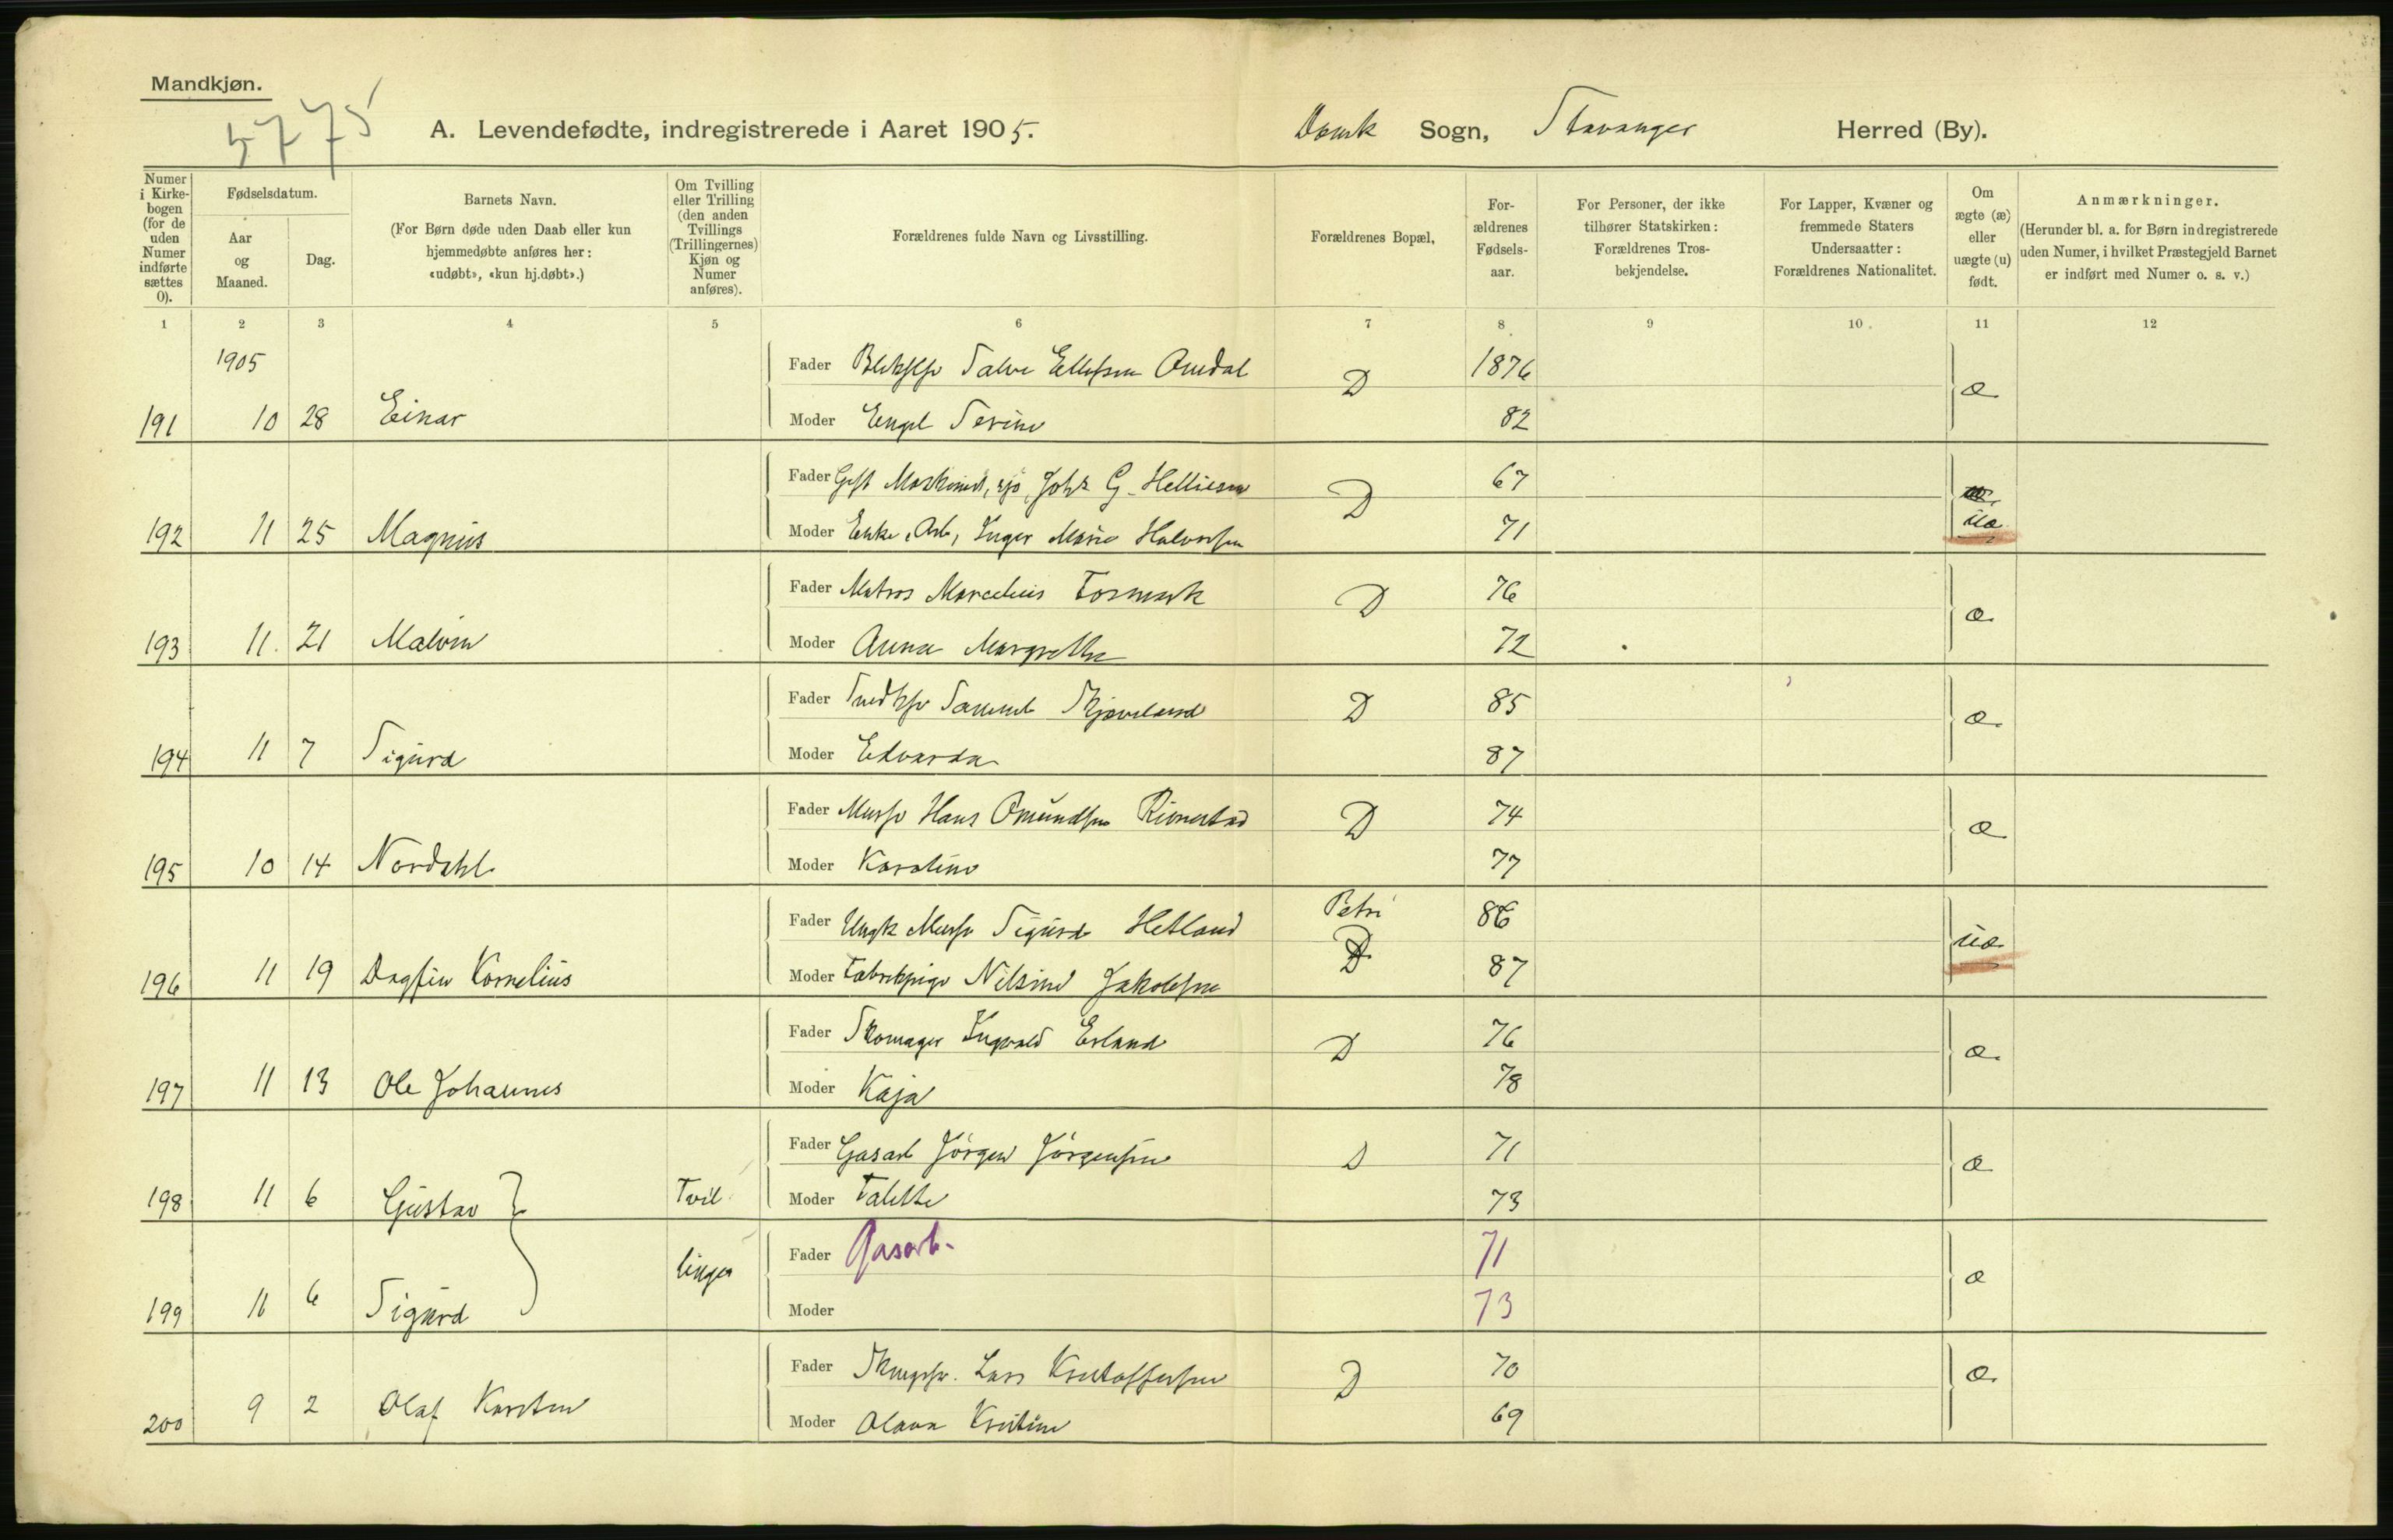 Mandkjøn.
5775
A. Levendefødte, indregistrerede i Aaret 1905.
Domk Sogn, Stavanger Herred (By).
Numer i Kirkebogen (for de uden Numer indførte sættes 0).
Fødselsdatum.
Aar og Maaned.
Dag.
Barnets Navn.
(For Børn døde uden Daab eller kun hjemmedøbte anføres her: «udøbt», «kun hj.døbt».)
Om Tvilling eller Trilling (den anden Tvillings (Trillingernes) Kjøn og Numer anføres).
Forældrenes fulde Navn og Livsstilling.
Forældrenes Bopæl,
Forældrenes Fødselsaar.
For Personer, der ikke tilhører Statskirken: Forældrenes Trosbekjendelse.
For Lapper, Kvæner og fremmede Staters Undersaatter: Forældrenes Nationalitet.
Om ægte (æ) eller uægte (u) født.
Anmærkninger.
(Herunder bl. a. for Børn indregistrerede uden Numer, i hvilket Præstegjeld Barnet er indført med Numer o. s. v.)
1 2 3 4 5 6 7 8 9 10 11 12
1905 Fader Salve Ellefsen Omdal D 1876 æ
191 10 28 Einar Moder Engel Serine 82
Fader Gift Maskinist, Johs G. Helliesen D 67
192 11 25 Magnus Moder Enke, Arb, Inger Marie Halvorsen 71 uæ
Fader Matros Marcelius Tormerk D 76 æ
193 11 21 Malvin Moder Anna Margrethe 72
Fader Samuel Skjæveland D 85 æ
194 11 7 Sigurd Moder Edvarda 87
Fader Hans Omundsen D 74 æ
195 10 14 Nordahl Moder Karoline 77
Fader Ungk Sigurd Hetland Petri D 86 uæ
196 11 19 Dagfin Kornelius Moder Nilsine Jakobsen 87
Fader Skomager Ingvald Erland D 76 æ
197 11 13 Ole Johannes Moder Kaja 78
Fader Gasarb Jörgen Jörgensen D 71 æ
198 11 6 Gustav Tvil Moder Talette 73
Fader Gasarb. 71 æ
199 11 6 Sigurd linger Moder 73
Fader Lars Kristoffersen D 70 æ
200 9 2 Olaf Karsten Moder Olava Kristine 69